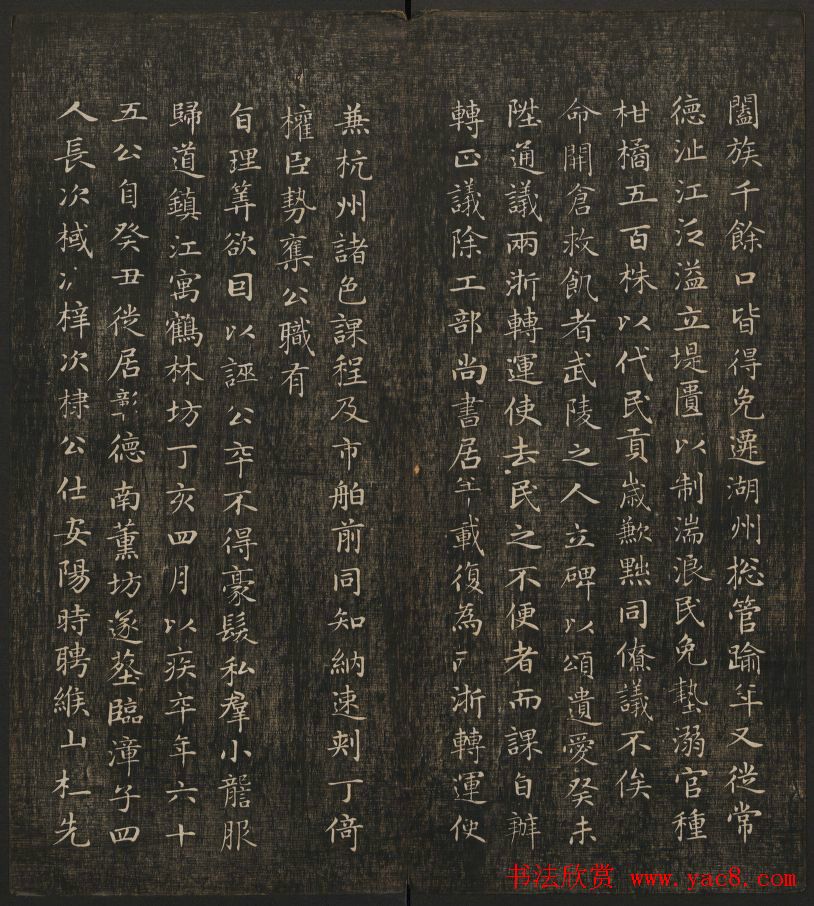 闔族千餘口皆得免遷湖州総管踰年又従常
德沚江泛溢立堤匱以制湍浪民免墊溺官種
柑橘五百株以代民貢歳歉㸃同僚議不俟
命開倉救飢者武陵之人立碑以頌遺愛癸未
陞通議兩浙轉運使去民之不便者而課自辦
轉正議除工部尚書居年載復為浙轉運使
兼杭州諸色課程及市舶前同知納速刺丁倚
權臣勢奪公職有
旨理筭欲因以誣公卒不得豪髮私羣小讋服
歸道鎮江寓鶴林坊丁亥四月以疾卒年六十
五公自癸丑徙居彰德南薫坊遂塟臨漳子四
人長次棫次梓次棣公仕安陽時聘緱山杜先
書法欣赏 www.yac8.com